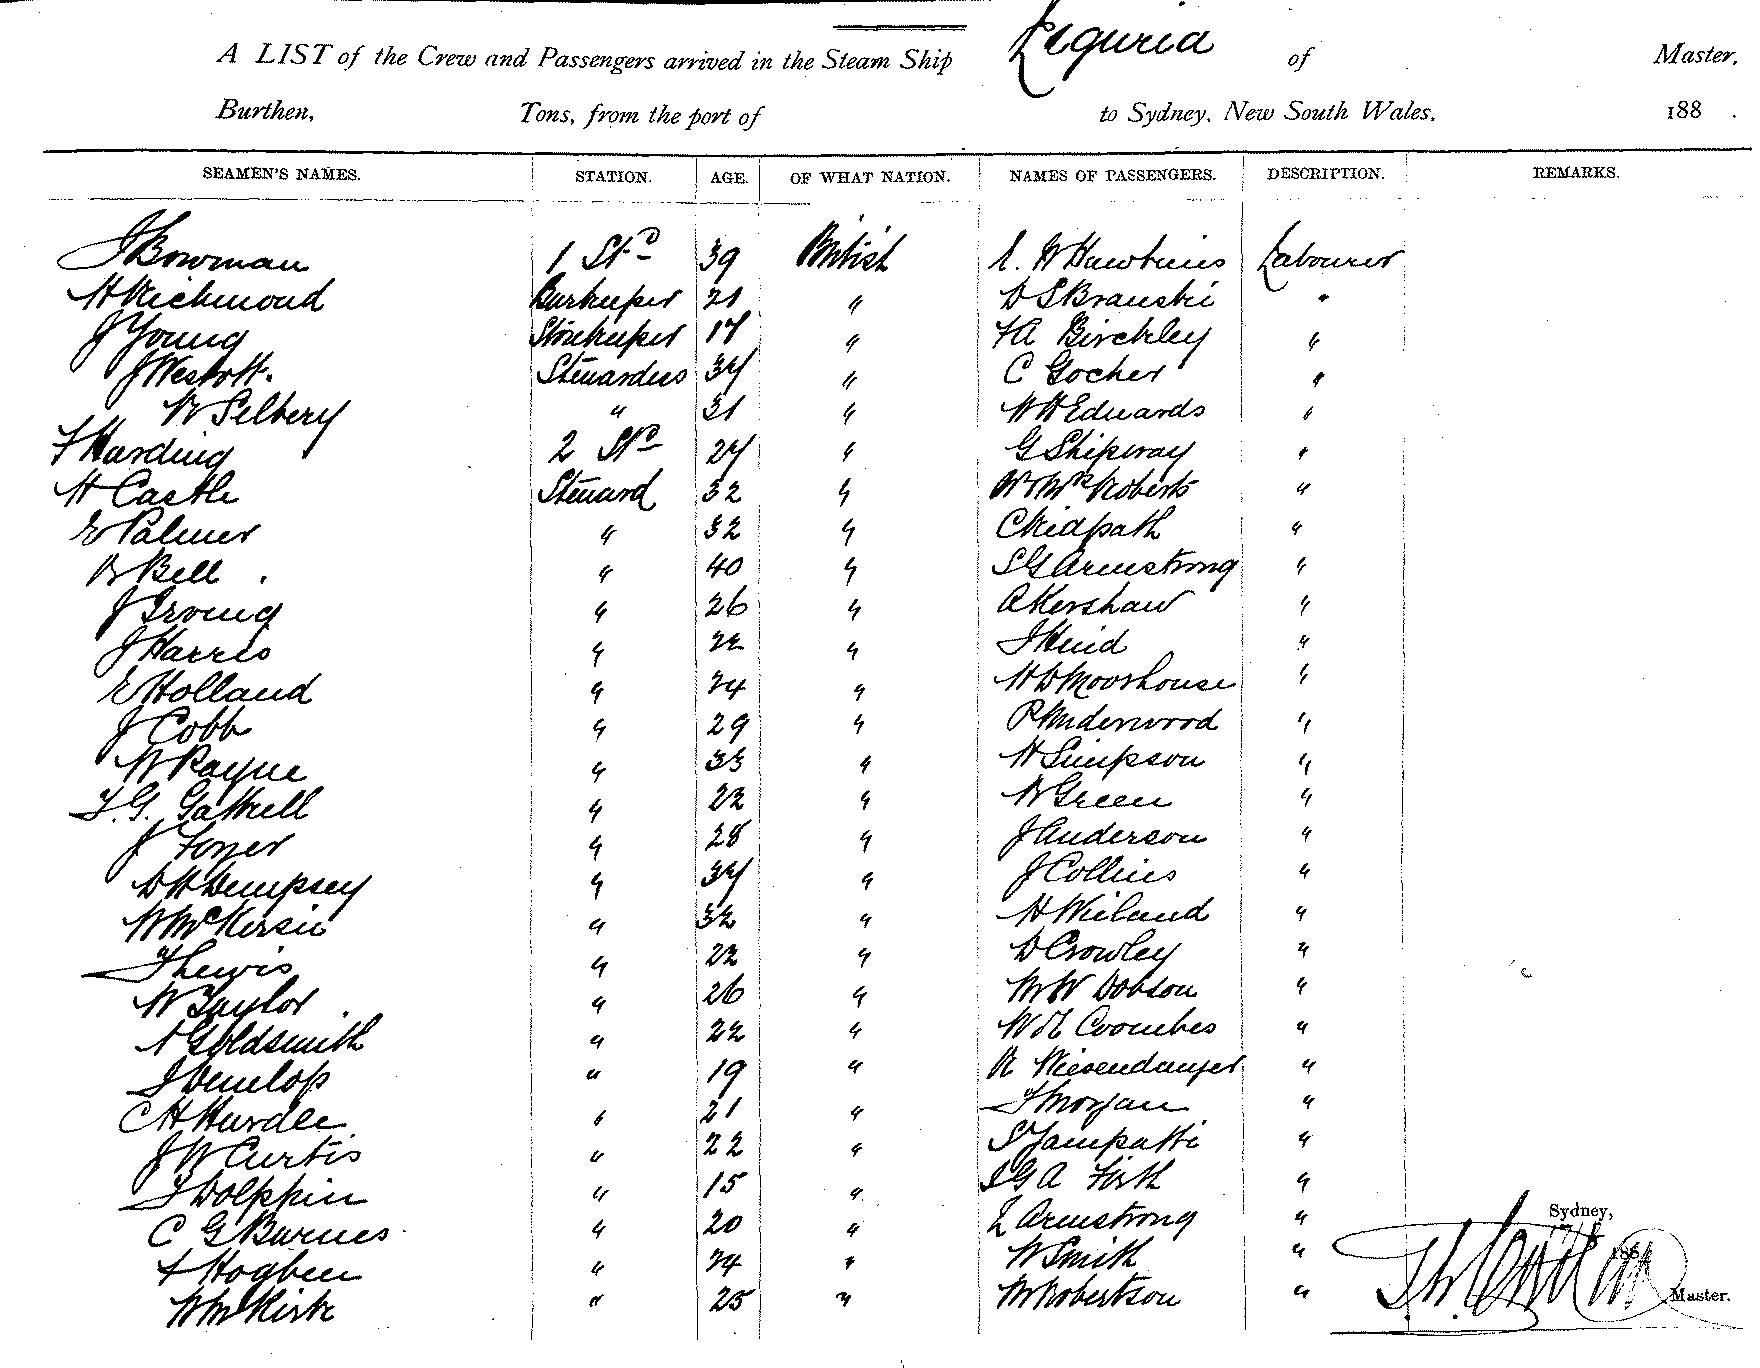 A LIST of the Crew and Passengers arrived in the Steam Ship Liguria of Master,
Burthen, Tons, from the port of to Sydney, New South Wales, 188 .
SEAMEN'S NAMES. STATION. AGE. OF WHAT NATION. NAMES OF PASSENGERS. DESCRIPTION. REMARKS.
J Bowman 1 Std 39 British W Hawkins Labourer
H Richmond Barkeeper 21 " D S Branski "
J Young Storekeeper 17 " F A Birckley "
J Westott. Stewardess 37 " C Gocher "
W Selbery " 31 " W H Edwards "
F Harding 2 Std 27 " G Shipway "
H Castle Steward 32 " Roberts "
E Palmer " 32 " C Ridpath "
W Bell " 40 " S G Armstrong "
J Irving " 26 " A Kershaw "
J Harris " 22 " J Hind "
E Holland " 24 " H D Moorhouse "
J Cobb " 29 " R Underwood "
W Payne " 33 " H Simpson "
F. G. Gattrell " 22 " W Green "
J Foyer " 28 " J Anderson "
D H Dempsey " 37 " J Collins "
W McKersie " 32 " H Wieland "
J Lewis " 22 " D Crowley "
W Taylor " 26 " W W Dobson "
A Goldsmith " 22 " W H Coombes "
J Dunlop " 19 " R Wiesendanger "
C H Hurdle " 21 " J Morgan "
J W Curtis " 22 " S Jampatti "
J Dolphin " 15 " J G A Firth "
C G Barnes " 20 " L Armstrong "
F Hogben " 24 " W Smith "
W M Kirk " 25 " W Robertson "
Sydney,
188
Master.